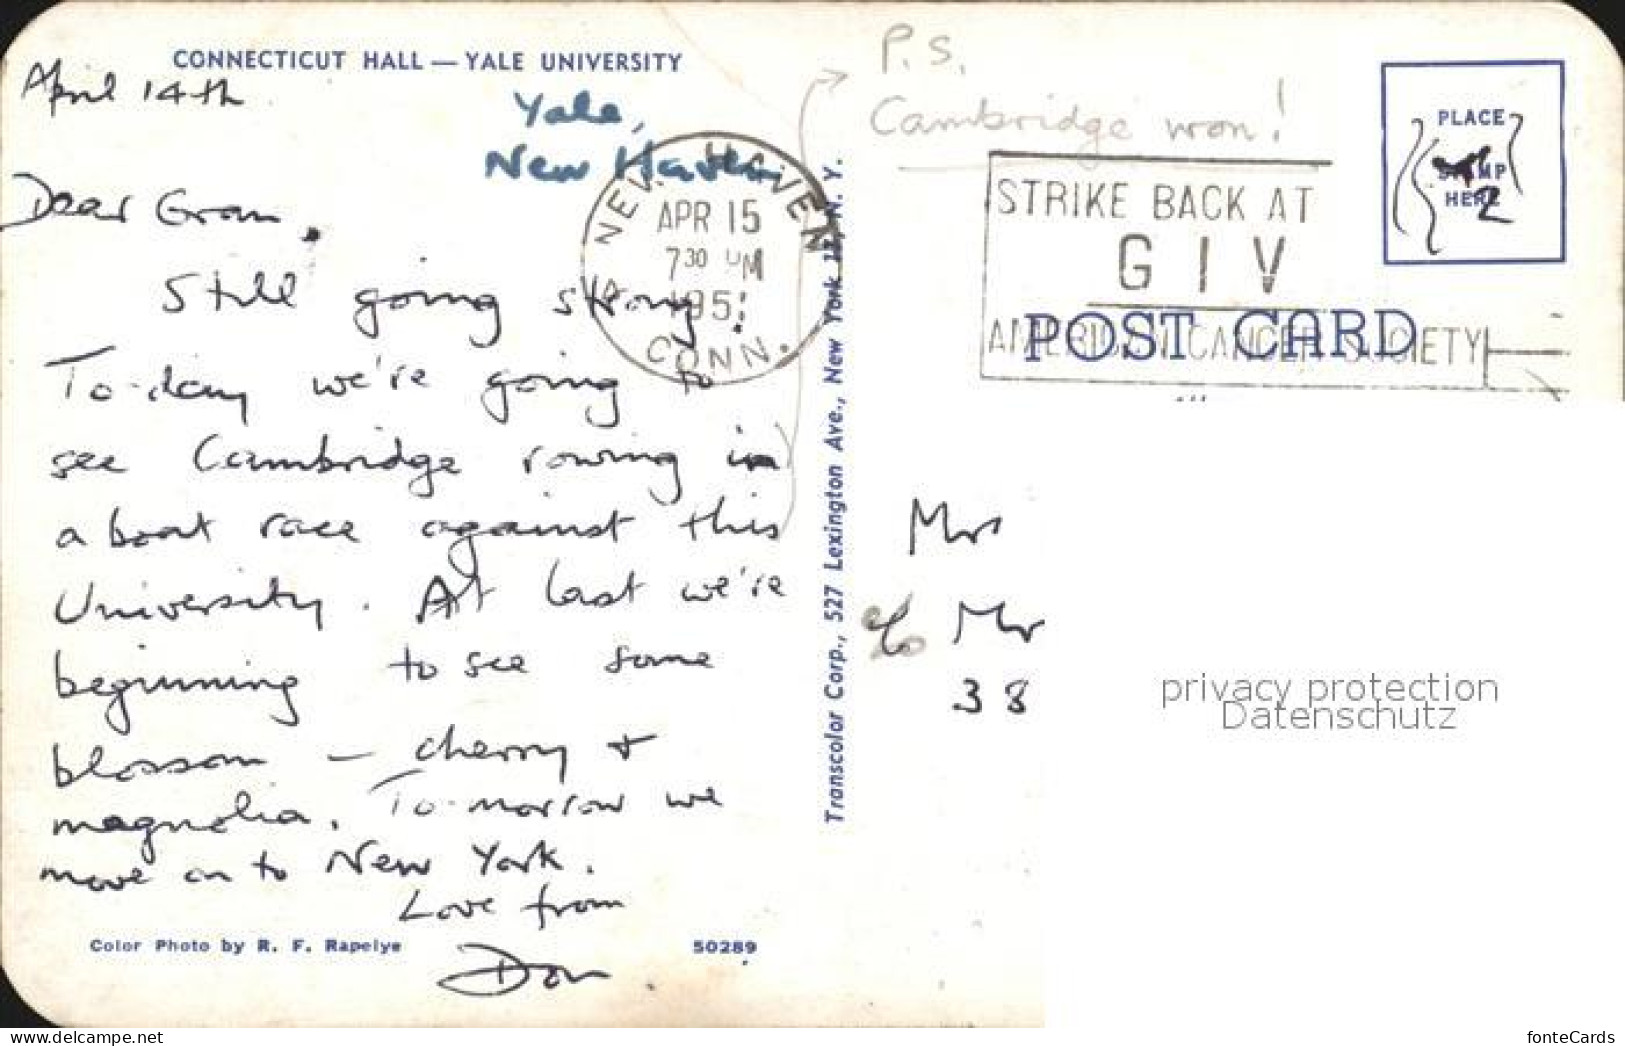 CONNECTICUT HALL — YALE UNIVERSITY
April 14th
Yale,
New Haven
Dear Gran,
Still going strong.
To-day we're going to
see Cambridge rowing in
a boat race against this
University. At last we're
beginning to see some
blossom – cherry +
magnolia. To-morrow we
move on to New York.
Love from
Don
Color Photo by R. F. Rapelye 50289
NEW HAVEN
APR 15
7 30 PM
195
CONN.
Transcolor Corp., 527 Lexington Ave., New York 17, N. Y.
P.S.
Cambridge won!
STRIKE BACK AT
GIV
AMERICAN CANCER SOCIETY
PLACE
STAMP
HERE
2
POST CARD
Mrs
c/o Mr
38
privacy protection
Datenschutz
www.delcampe.net
fonteCards